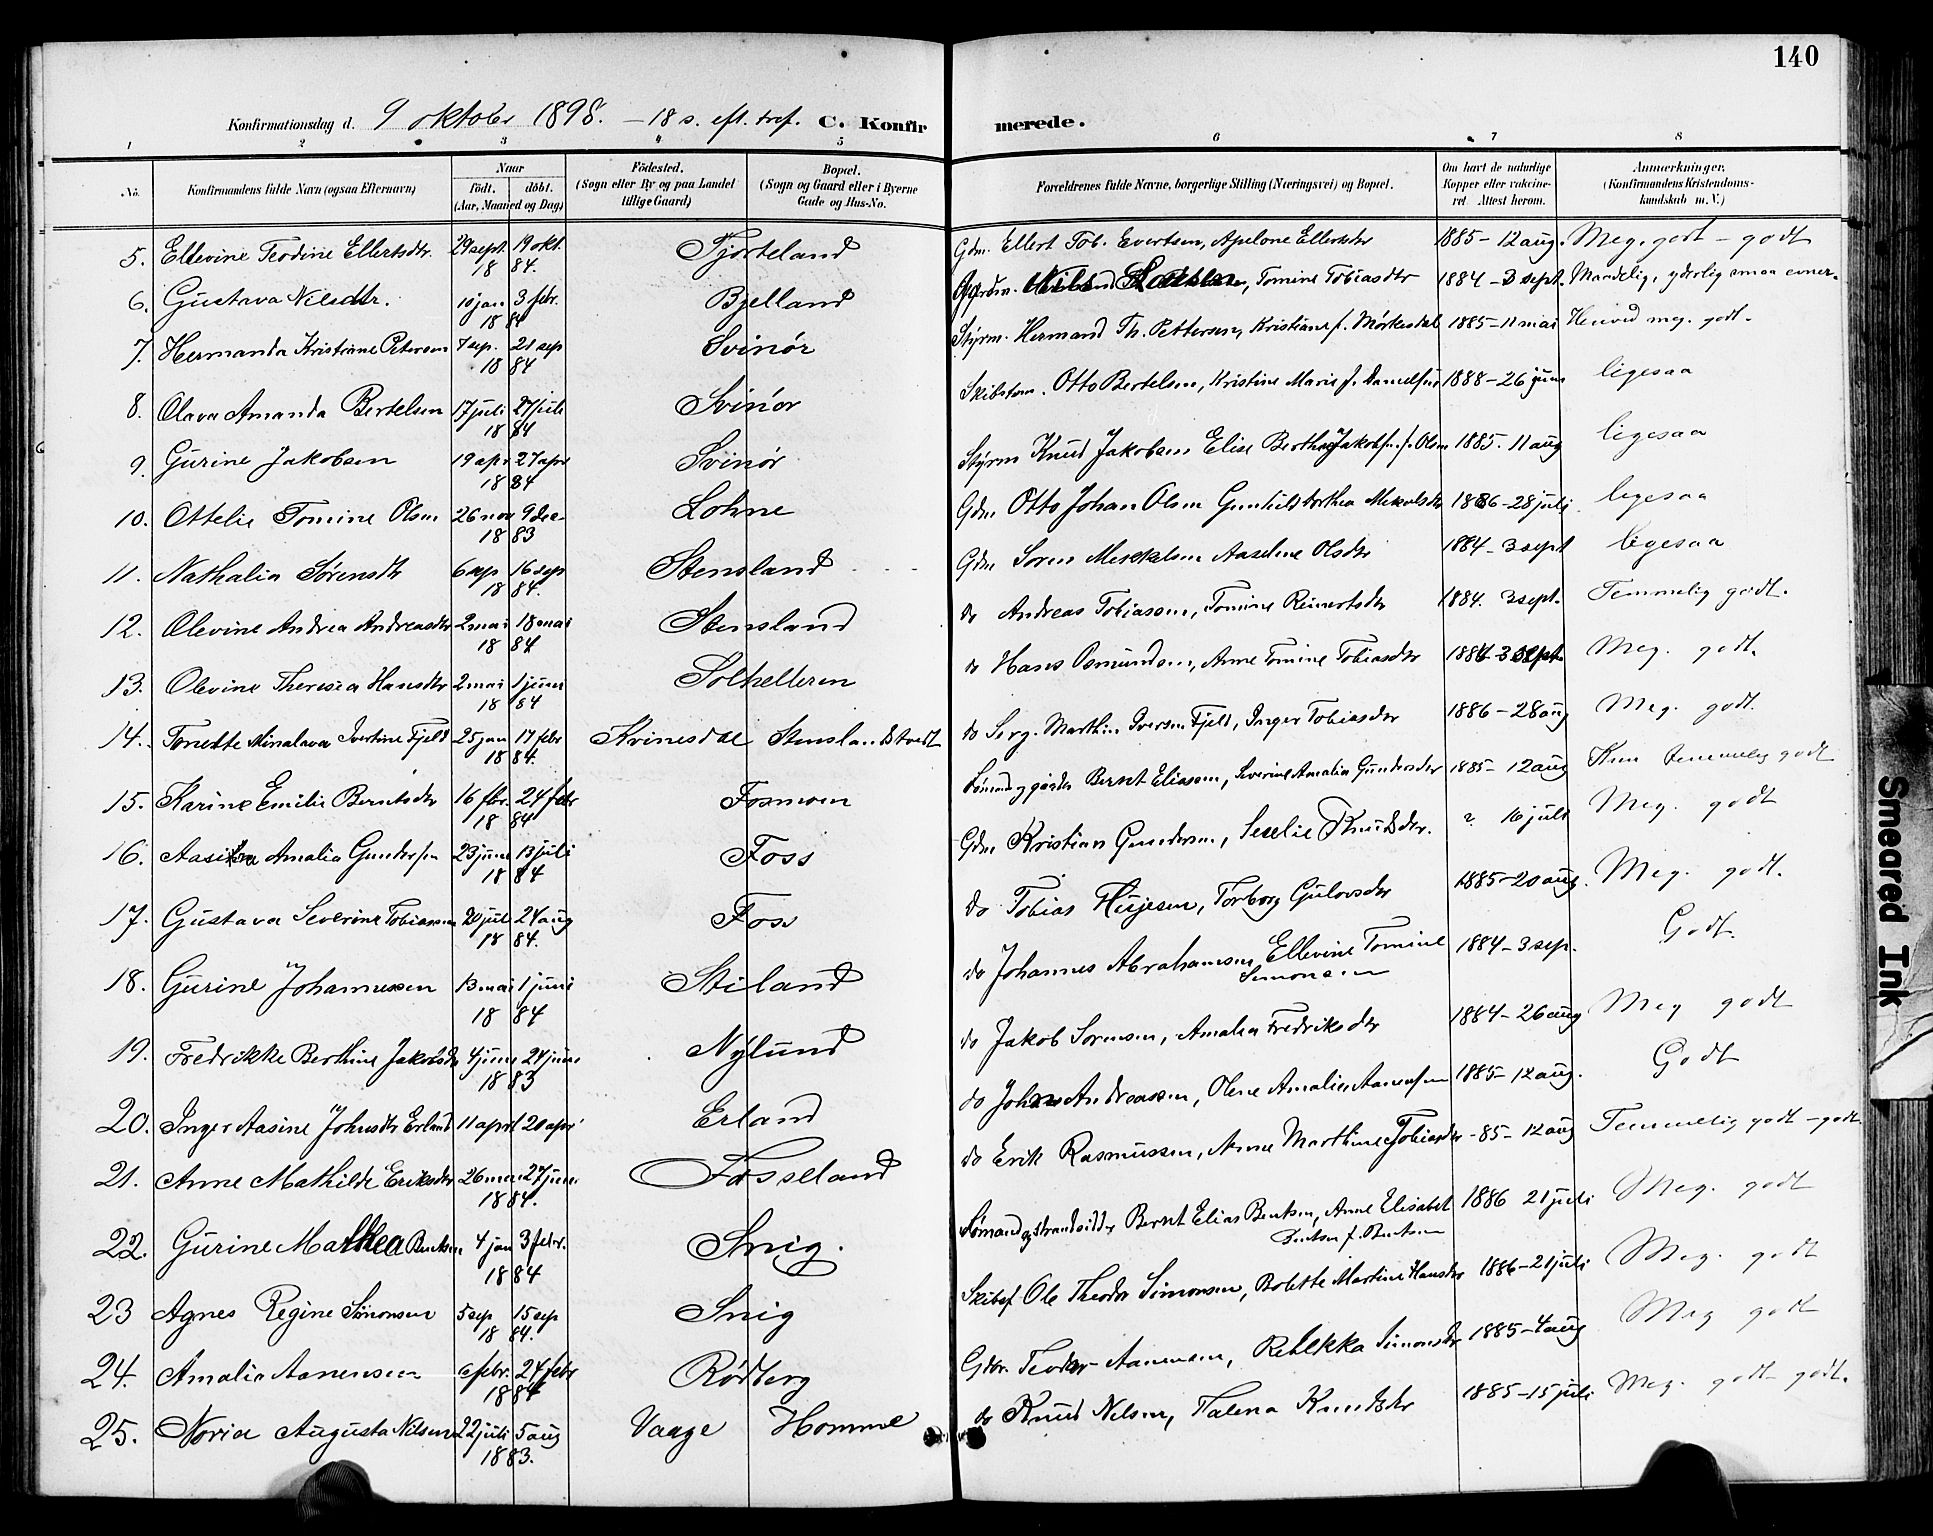 140
Konfirmationsdag d. 9 oktober 1898. – 18 s. eft. tref. C. Konfirmerede.
1 2 3 4 5 6 7 8
No.
Konfirmandens fulde Navn (ogsaa Efternavn)
Naar
født. døbt.
(Aar, Maaned og Dag)
Fødested.
(Sogn eller By og paa Landet tillige Gaard)
Bopæl.
(Sogn og Gaard eller i Byerne Gade og Hus-No.
Forældrenes fulde Navne, borgerlige Stilling (Næringsvei) og Bopæl.
Om havt de naturlige Kopper eller vakcineret. Attest herom.
Anmerkninger.
(Konfirmandens Kristendomskundskab m. V.)
5. Ellevine Teodine Ellertsdtr 29 sept 19 okt. 1884. Fjorteland Gdm. Ellert Tob. Evertsen, Apelone Ellertsdtr 1885 – 12 aug. Meg. godt – godt
6. Gustava Nilsdtr. 10 jan 3 febr. 1884 Bjelland Tomine Tobiasdtr 1884 – 3 sept. Maadelig, yderlig smaa evner.
7. Hermanda Kristiane Petersen 7 sep. 21 sep 1884 Svinør Styrm. Hermand Th. Pettersen, Kristiane f. Mørkesdal 1885 – 11 mai Henved meg. godt.
8. Olava Amanda Bertelsen 17 juli 27 juli 1884 Svinør Skibstøm. Otto Bertelsen, Kristine Marie f. Danielsen 1888 – 26 juni ligesaa
9. Gurine Jakobsen 19 apr 27 apr 1884 Svinør Styrm Knud Jakobsen Elise Berthea Jakobs. f. Olsen 1885. 11 aug ligesaa
10. Ottelie Tomine Olsen 26 nov 9 dec 1883 Lohne Gdm Otto Johan Olsen Gunhild Dorthea Mekalsdtr 1886 – 28 juli ligesaa
11. Nathalia Sørensdtr 6 sep 16 sep 1884. Stensland Gdm Soren Mekkelsen Aaseline Olsdtr 1884 – 3 sept ligesaa
12. Olevine Andrea Andreasdtr 2 mai 18 mai 1884 Stensland do Andreas Tobiassen, Tomine Reinertsdtr 1884. 3 sept. Temmelig godt.
13. Olevine Theresia Hansdtr 2 mai 1 juni 1884 Solhelleren do Hans Osmundsen, Anne Tomine Tobiasdtr 1884 – 3 sept. Meg. godt.
14. Tonette Minalava Ivertine Fjeld 25 jan 17 febr 1884. Kvinesdal Stenslandstvedt do Serg. Marthin Iversen Fjeld, Inger Tobiasdtr 1886 – 28 aug Meg. godt.
15. Karine Emilie Berntsdtr 16 fbr. 24 febr 1884 Fosmoen Sømand og gårdbr Bernt Eliassen, Severine Amalia Gundersdtr 1885 – 12 aug Kun temmelig godt
16. Amalia Gundersen 23 juni 13 juli 1884 Foss Gdm Kristian Gundersen, Knudsdtr. ? 16 juli Meg. godt
17. Gustava Severine Tobiassen 20 juli 24 aug 1884. Foss do Tobias Husjesen, Torborg Gjulovsdtr 1885 – 20 aug. Meg. godt.
18. Gurine Johannessen 13 mai 1 juni 1884 Stiland do Johannes Abrahamsen, Ellevine Tomine Simonsen 1884 – 3 sep. Godt.
19. Fredrikke Berthine Jakobsdtr 4 juni 24 juni 1883 Nylund do Jakob Sorensen, Amalia Fredriksdtr 1884 – 26 aug Meg godt
20. Inger Aasine Johnsdtr Erland 11 april 20 april Erland do John Andreassen, Olene Amalie Aanensen 1885 – 12 aug. Godt
21. Anne Mathilde Eriksdtr 26 mai 27 juni 1884. Fosseland do Erik Rasmussen, Anne Marthine Tobiasdtr – 85 – 12 aug Temmelig godt – godt
22. Gurine Mathea Bentsen 4 jan 3 febr. 1884 Snig. Sømand og strandsidder Bernt Elias Bentsen, Anne Elisabet Bentsen f. Bentsen 1886 21 juli Meg. godt
23 Agnes Regine Simonsen 5 sep 15 sep 1884. Snig Skibsf Ole Theodor Simonsen, Bolette Martine Hansdtr 1886 – 21 juli Meg. godt
24. Amalia Aanensen febr. 24 febr 1884 Rødberg Gdbr. Teodor Aanensen, Rebekka Simonsdtr 1885 – 4 aug Meg godt
25. Noria Augusta Nilsen 22 juli 5 aug 1883. Vaage Homme do Knud Nilsen, Talena Knudsdtr 1885 – 15 juli Meg. godt – godt.
Smeared Ink